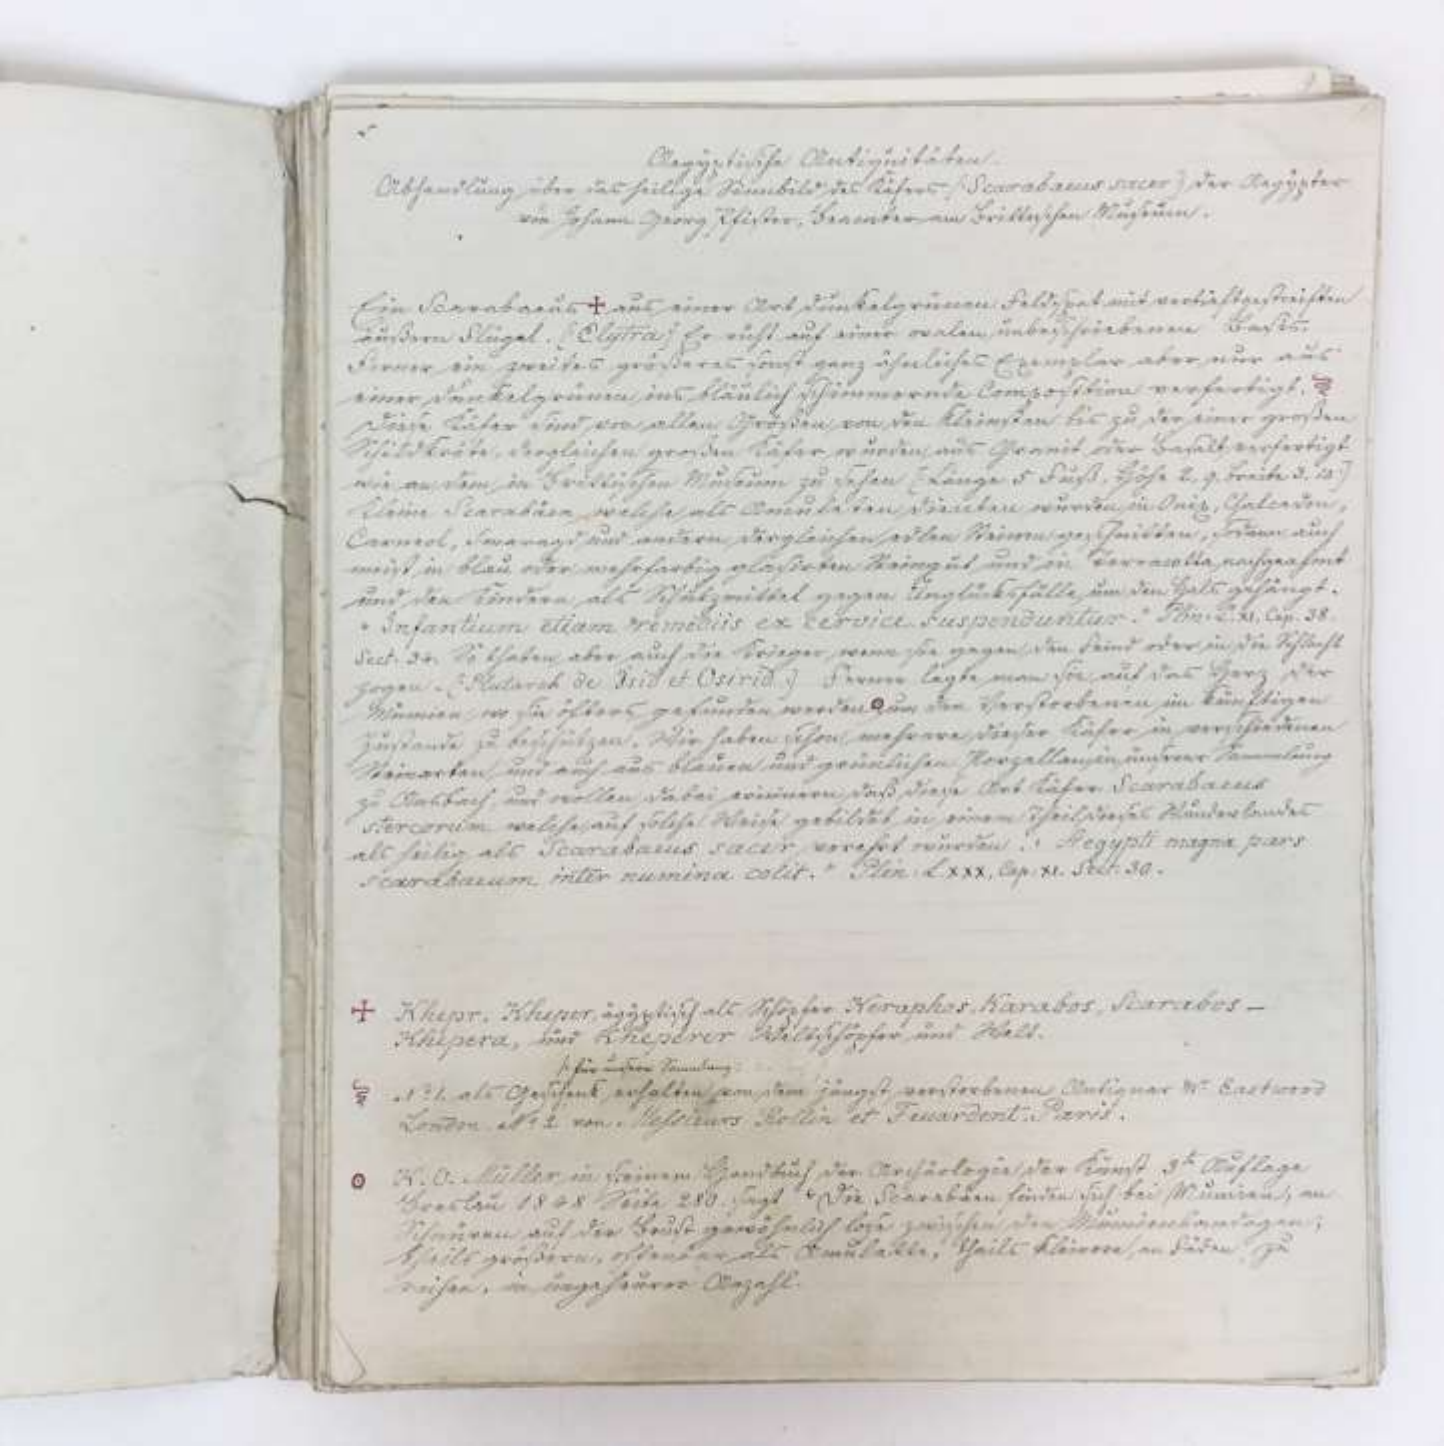 Aegyptische Antiquitäten.
Abhandlung über das heilige Sinnbild des Käfers (Scarabaeus sacer) der Aegypter
von Johann Georg Pfister, Beamter am Brittischen Museum.
Ein Scarabaeus + aus einer Art dunkelgrünen Feldspat mit vertieftgestreiften
äußern Flügel. (Elytra) Er ruht auf einer ovalen unbeschriebenen Basis.
Ferner ein zweites größeres sonst ganz ähnliches Exemplar aber nur aus
einer dunkelgrünen ins bläulich schimmernde Composition verfertigt.
Diese Käfer sind von allen Größen, von den kleinsten bis zu der einer großen
Schildkröte. Dergleichen großen Käfer wurden aus Granit oder Basalt verfertigt
wie an dem im Brittischen Museum zu sehen (Länge 5 Fuß. Höhe 2. 9. Breite 3. 10.)
Kleine Scarabäen, welche als Amuleten dienten wurden in Onix, Chalcedon,
Carneol, Smaragd und andern dergleichen edlen Steinen geschnitten, dann auch
meist in blau oder mehrfarbig glasirten Steingut und in Terracotta nachgeahmt
und den Kindern als Schutzmittel gegen Unglücksfälle um den Hals gehängt.
"Infantium etiam remediis ex cervice suspenduntur." Plin. L. XI. Cap. 38.
Sect. 34. So thaten aber auch die Krieger, wenn sie gegen den Feind oder in die Schlacht
zogen. (Plutarch de Isid et Osirid.) Ferner legte man sie auf das Herz der
Mumien, wo sie öfters gefunden werden um den Verstorbenen im künftigen
Zustande zu beschützen. Wir haben schon mehrere dieser Käfer in verschiedenen
Steinarten und auch aus blauen und grünlichen Porzellan in unserer Sammlung
zu Ansbach, und wollen dabei erinnern daß diese Art Käfer Scarabaeus
stercorum welche auf solche Weise gebildet in einem Theil dieses Wunderlandes
als heilig als Scarabaeus sacer verehrt wurden. "Aegypti magna pars
scarabaeum inter numina colit." Plin. L XXX, Cap. XI. Sect. 30.
+ Khepr. Kheper, ägyptisch als Schöpfer Keraphos, Karabos, Scarabos –
Khepera, und Kheperer Weltschöpfer und Welt.
für unsere Sammlung
No 1. als Geschenk erhalten von dem jüngst verstorbenen Antiquar Mr Eastwood
London No 2 von Messieurs Rollin et Feuardent. Paris.
o K. O. Müller in seinem Handbuch der Archäologie der Kunst 3te Auflage
Breslau 1848 Seite 280. sagt "Die Scarabäen finden sich bei Mumien, an
Schnüren auf der Brust gewöhnlich lose zwischen den Mumienbandagen;
theils größern, offenbar als Amulette, theils kleinere, an Fäden zu
reihen, in ungeheurer Anzahl.